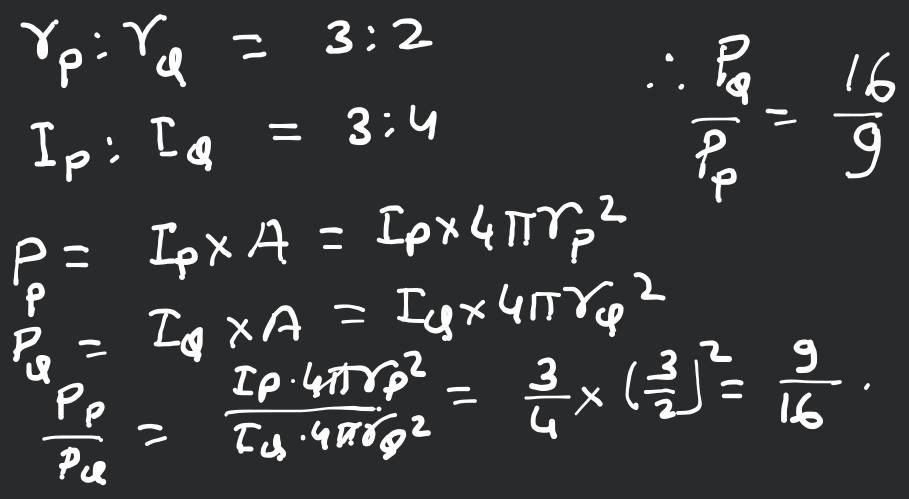 r_p : r_Q = 3 : 2
I_p : I_Q = 3 : 4
∴ P_Q / P_p = 16 / 9
P_p = I_p × A = I_p × 4πr_p²
P_Q = I_Q × A = I_Q × 4πr_Q²
P_p / P_Q = I_p · 4πr_p² / I_Q · 4πr_Q² = 3/4 × (3/2)² = 9/16 .